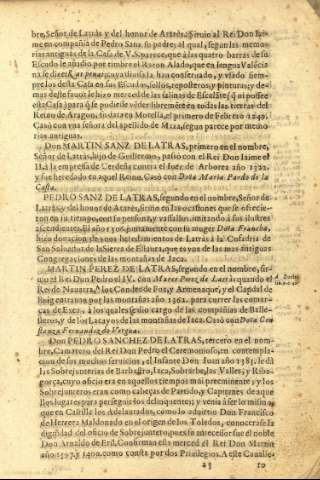 bre, Señor de Latrás y del honor de Atrès, siruio al Rei Don Iai-
me en compañia de Pedro Sanz su padre; al qual, segun las memo-
rias antiguas de la Casa de V.S. parece, que à las quatro barras de su
Escudo le añadio por timbre el Raton Alado, que en lengua Valécia
na se dize
los de la Casa en sus Escudos, sellos, reposteros, y pinturas; y de-
mas desse fauor le hizo merced de las salinas de Escalate; q̃ ni possee
esta Casa, para q̃ se podiesse vēder libremēte en todas las tierras del
Reino de Aragon, su data en Morella, el primero de Febrero 1249.
Casò con vna señora del apellido de Maza, segun parece por memo-
rias antiguas.
Don MARTIN SANZ DE LATRAS, primero en el nombre,
Señor de Latràs, hijo de Guillermo, passò con el Rei Don Iaime el
II. à la empresa de Cerdeña contra el Iuez de Arborea año 1322.
y fue heredado en aquel Reino. Casò con Doña Maria Pardo de la
Casta.
PEDRO SANZ DE LATRAS, segundo en el nombre, Señor de
Latràs, y del honor de Atrès, siruio en las ocasiones que se ofrecie-
ron en su tiempo, con su persona, y vassallos, imitando à sus ilustres
ascendientes. El año y 105. juntamente con su muger Doña Francha,
hizo donacion de vnos heredamientos de Latràs à la Cofadria de
San Sebastian de la Sierra de Ellaura, que es vna de las mas antiguas
Congregaciones de las montañas de Iaca.
MARTIN PEREZ DE LATRAS, segundo en el nombre, sir-
uio al Rei Don Pedro el IV. con Mateo Perez de Latràs quando el
Rei de Nauarra, i los Condes de Fox, y Armenaque, y el Capital de
Buig entraron por las montañas año 1362. para correr las comar-
cas de Exea, à los quales se dio cargo de las compañias de Balles-
teros, y de los Lacayos de las montañas de Iaca. Casò con Doña Cons-
tança Fernandez de Vergua.
Don PEDRO SANCHEZ DE LATRAS, tercero en el nom-
bre, Camarero del Rei Don Pedro el Ceremonioso, en contempla-
cion de sus muchos seruicios, el Infante Don Iuan año 1381. le dà
las Sobrejunterias de Barbastro, Iaca, Sobrarbe, los Valles, y Riba-
gorça, cuyo oficio era en aquellos tiempos mui preeminente, y los
Sobrejunteros eran como cabeças de Partido, y Capitanes de aque
llos lugares para perseguir los delinquentes; y venia à ser lo mismo
que en Castilla los Adelantados, como lo aduirtio Don Francisco
de Herrera Maldonado en el origen de los Toledos, conocerase la
dignidad del oficio de Sobrejuntero, pues su antecessor fue el noble
Don Arnaldo de Eril. Confirman esta merced el Rei Don Martin
año 1397. y 1400. como consta por dos Priuilegios. A este Caualle-
ro